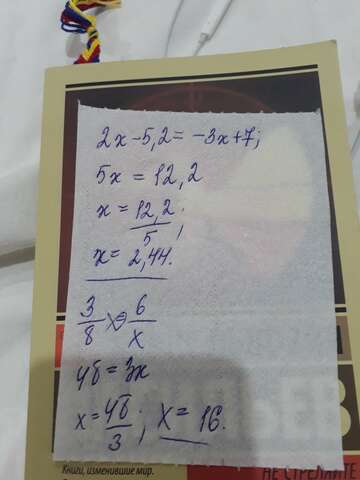 2x - 5,2 = -3x + 7;
5x = 12,2
x = 12,2/5;
x = 2,44.
3/8 = 6/x
48 = 3x
x = 48/3; x = 16.
Книги, изменившие мир.
НЕ СТРЕЛЯЙТЕ